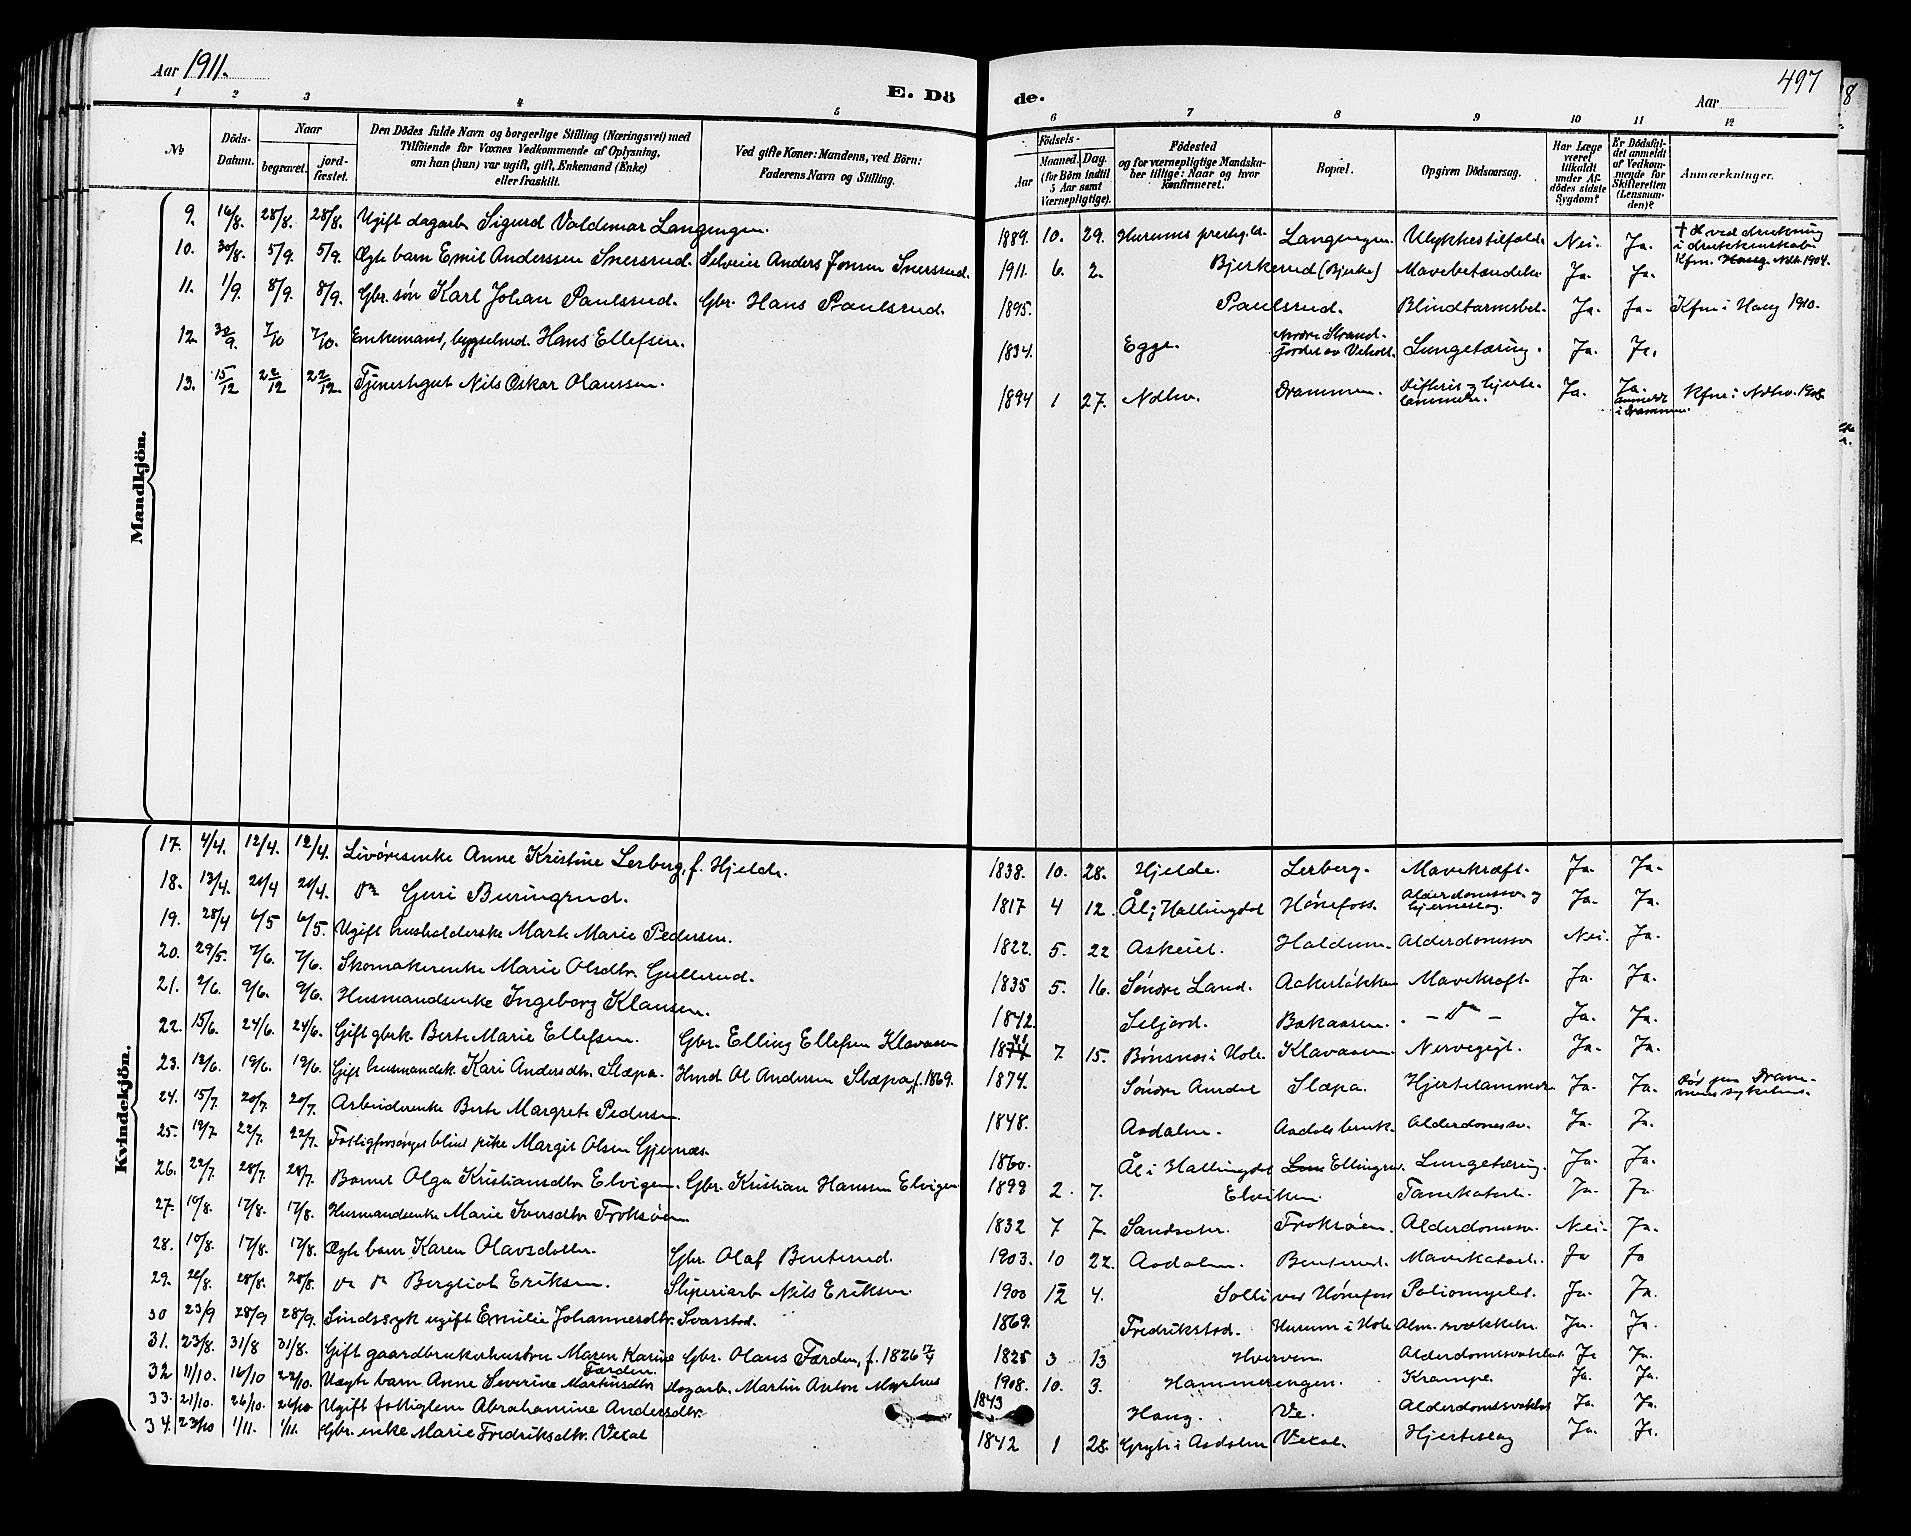 Aar 1911.
497
E. Döde.
Aar
1 2 3 4 5 6 7 8 9 10 11 12
№
Döds-Datum.
Naar
begravet.
jord-fæstet.
Den Dödes fulde Navn og borgerlige Stilling (Næringsvei) med
Tilföiende for Voxnes Vedkommende af Oplysning,
om han (hun) var ugift, gift, Enkemand (Enke)
eller fraskilt.
Ved gifte Koner: Mandens, ved Börn:
Faderens Navn og Stilling.
Födsels-
Aar
Maaned. Dag.
(for Börn indtil
5 Aar samt
Værnepligtige).
Födested
og for værnepligtige Mandska-
ber tillige: Naar og hvor
konfirmeret.
Bopæl.
Opgiven Dödsaarsag.
Har Læge
været
tilkaldt
under Af-
dödes sidste
Sygdom?
Er Dödsfal-
det anmeldt
af Vedkom-
mende for
Skifteretten
(Lensman-
den)?
Anmærkninger.
Mandkjön.
9. 16/8. 28/8. 28/8. Ugift dagarb Sigurd Valdemar Langengen. 1889. 10. 29. Hurums prestegjld. Langengen. Ulykkestilfælde Nei. Ja.
10. 30/8. 5/9. 5/9. Ægte barn Emil Anderssen Snersrud. Selveier Anders Jonsen Snersrud. 1911. 6. 2. Bjerkerud (Bjerke) Mavebetændelse Ja. Ja. Kfm. Haug Ndh. 1904.
11. 1/9. 8/9. 8/9. Gbr. søn Karl Johan Paulsrud. Gbr. Hans Paulsrud. 1895. Paulsrud. Blindtarmsbet. Ja. Ja. Kfm i Haug 1910.
12. 30/9. 7/10 7/10. Enkemand, bygselmd. Hans Ellefsen. 1834. Egge. Lungetæring. Ja. Ja.
13. 15/12 22/12 22/12. Tjenestegut Nils Oskar Olaussen. 1894 1 27. Ndhv. Drammen. Difteri og hjerte-lammelse. Ja. Ja. anmeldt i Drammen. Kfm i Ndhv. 1908.
Kvindekjön.
17. 4/4. 12/4. 12/4. Livøresenke Anne Kristine Lerberg, f. Hjelde. 1838. 10. 28. Hjelde. Lerberg. Mavekræft. Ja. Ja.
18. 13/4. 20/4 20/4. do Guri Buringrud. 1817 4 12. Ål i Hallingdal Hønefoss. Alderdomssv. og hjerneslag. Ja. Ja.
19. 28/4 6/5 6/5. Ugift husholderske Marte Marie Pedersen. 1822. 5. 22 Askeiet. Haldum. Alderdomssv Nei. Ja.
20. 29/5. 7/6. 7/6. Skomakerenke Marie Olsdtr. Gullerud. 1835 5. 16. Søndre Land. Aakerløkken Mavekræft. Ja. Ja.
21. 2/6. 9/6. 9/6. Husmandsenke Ingeborg Klausen. 1842. Seljord. Bakaasen. - do - Ja. Ja.
22. 15/6. 24/6. 24/6. Gift gbrk. Berte Marie Ellefsen. Gbr. Elling Ellefsen Klavaasen 7. 15. Bønsnes i Hole Klavaasen. Nervegigt. Ja. Ja.
23. 12/6. 19/6. 19/6. Gift husmandsk. Kari Andersdtr. Slæpa. Hmd. Ol Andersen Slæpa f. 1869. 1874. Søndre Aurdal Slæpa. Hjertelammelse Ja. Ja. Dør paa Dram-mens sykehus.
24. 15/7. 20/7. 20/7. Arbeiderenke Berte Margrete Pedersen. 1848. Aadalen. Aadals bruk. Alderdomssv. Ja. Ja.
25. 19/7 22/7. 22/7. Fattigforsørget blind pike Margit Olsen Gjernæs. 1860. Ål i Hallingdal Ellingrud. Lungetæring. Ja. Ja.
26. 22/7 28/7. 28/7. Barnet Olga Kristiansdtr. Elvigen. Gbr. Kristian Hanssen Elvigen 1899 2. 7. Elviken. Ja. Ja
27. 10/8. 17/8. 17/8. Husmandsenke Marie Iversdtr. Froksøen 1832 7 7. Froksøen. Alderdomssv. Nei. Ja.
28. 10/8. 17/8. 17/8. Ægte barn Karen Olavsdatter. Gbr. Olaf Benterud. 1903. 10 22. Aadalen. Benterud. Mavekatarh. Ja Ja
29. 22/8. 28/8. 28/8. do do Bergliot Eriksen. Sliperiarb. Nils Eriksen 1900 12 4. Solli ved Hønefoss Poliomyelit. Ja. Ja.
30 23/9 28/9 28/9. Sindssyk ugift Emilie Johannesdtr. Svarstad. 1869. Fredrikstad. Hurum i Hole Alm. svækkelse. Ja. Ja.
31. 23/8. 31/8 31/8. Gift gaardbrukerhustru Maren Karine Færden. Gbr. Olaus Færden, f. 1826 7/4 1825 3 13 Hverven. Alderdomssvakhet Ja Ja.
32 11/10. 16/10 22/10. Uægte barn Anne Severine Martinsdtr Dagarb. Martin Anton Myrhus 1908. 10. 3. Hammerengen. Krampe. Ja. Ja.
33. 21/10. 26/10. 26/10 Ugift fattiglem Abrahamine Andersdtr. 1843 Haug. Ve. Alderdomssvakhet Ja. Ja.
34. 23/10 1/11. 1/11. Gbr. enke Marie Fredriksdtr. Vexal 1842 1 28. Gryte i Aadalen Vexal. Hjerteslag Ja. Ja.